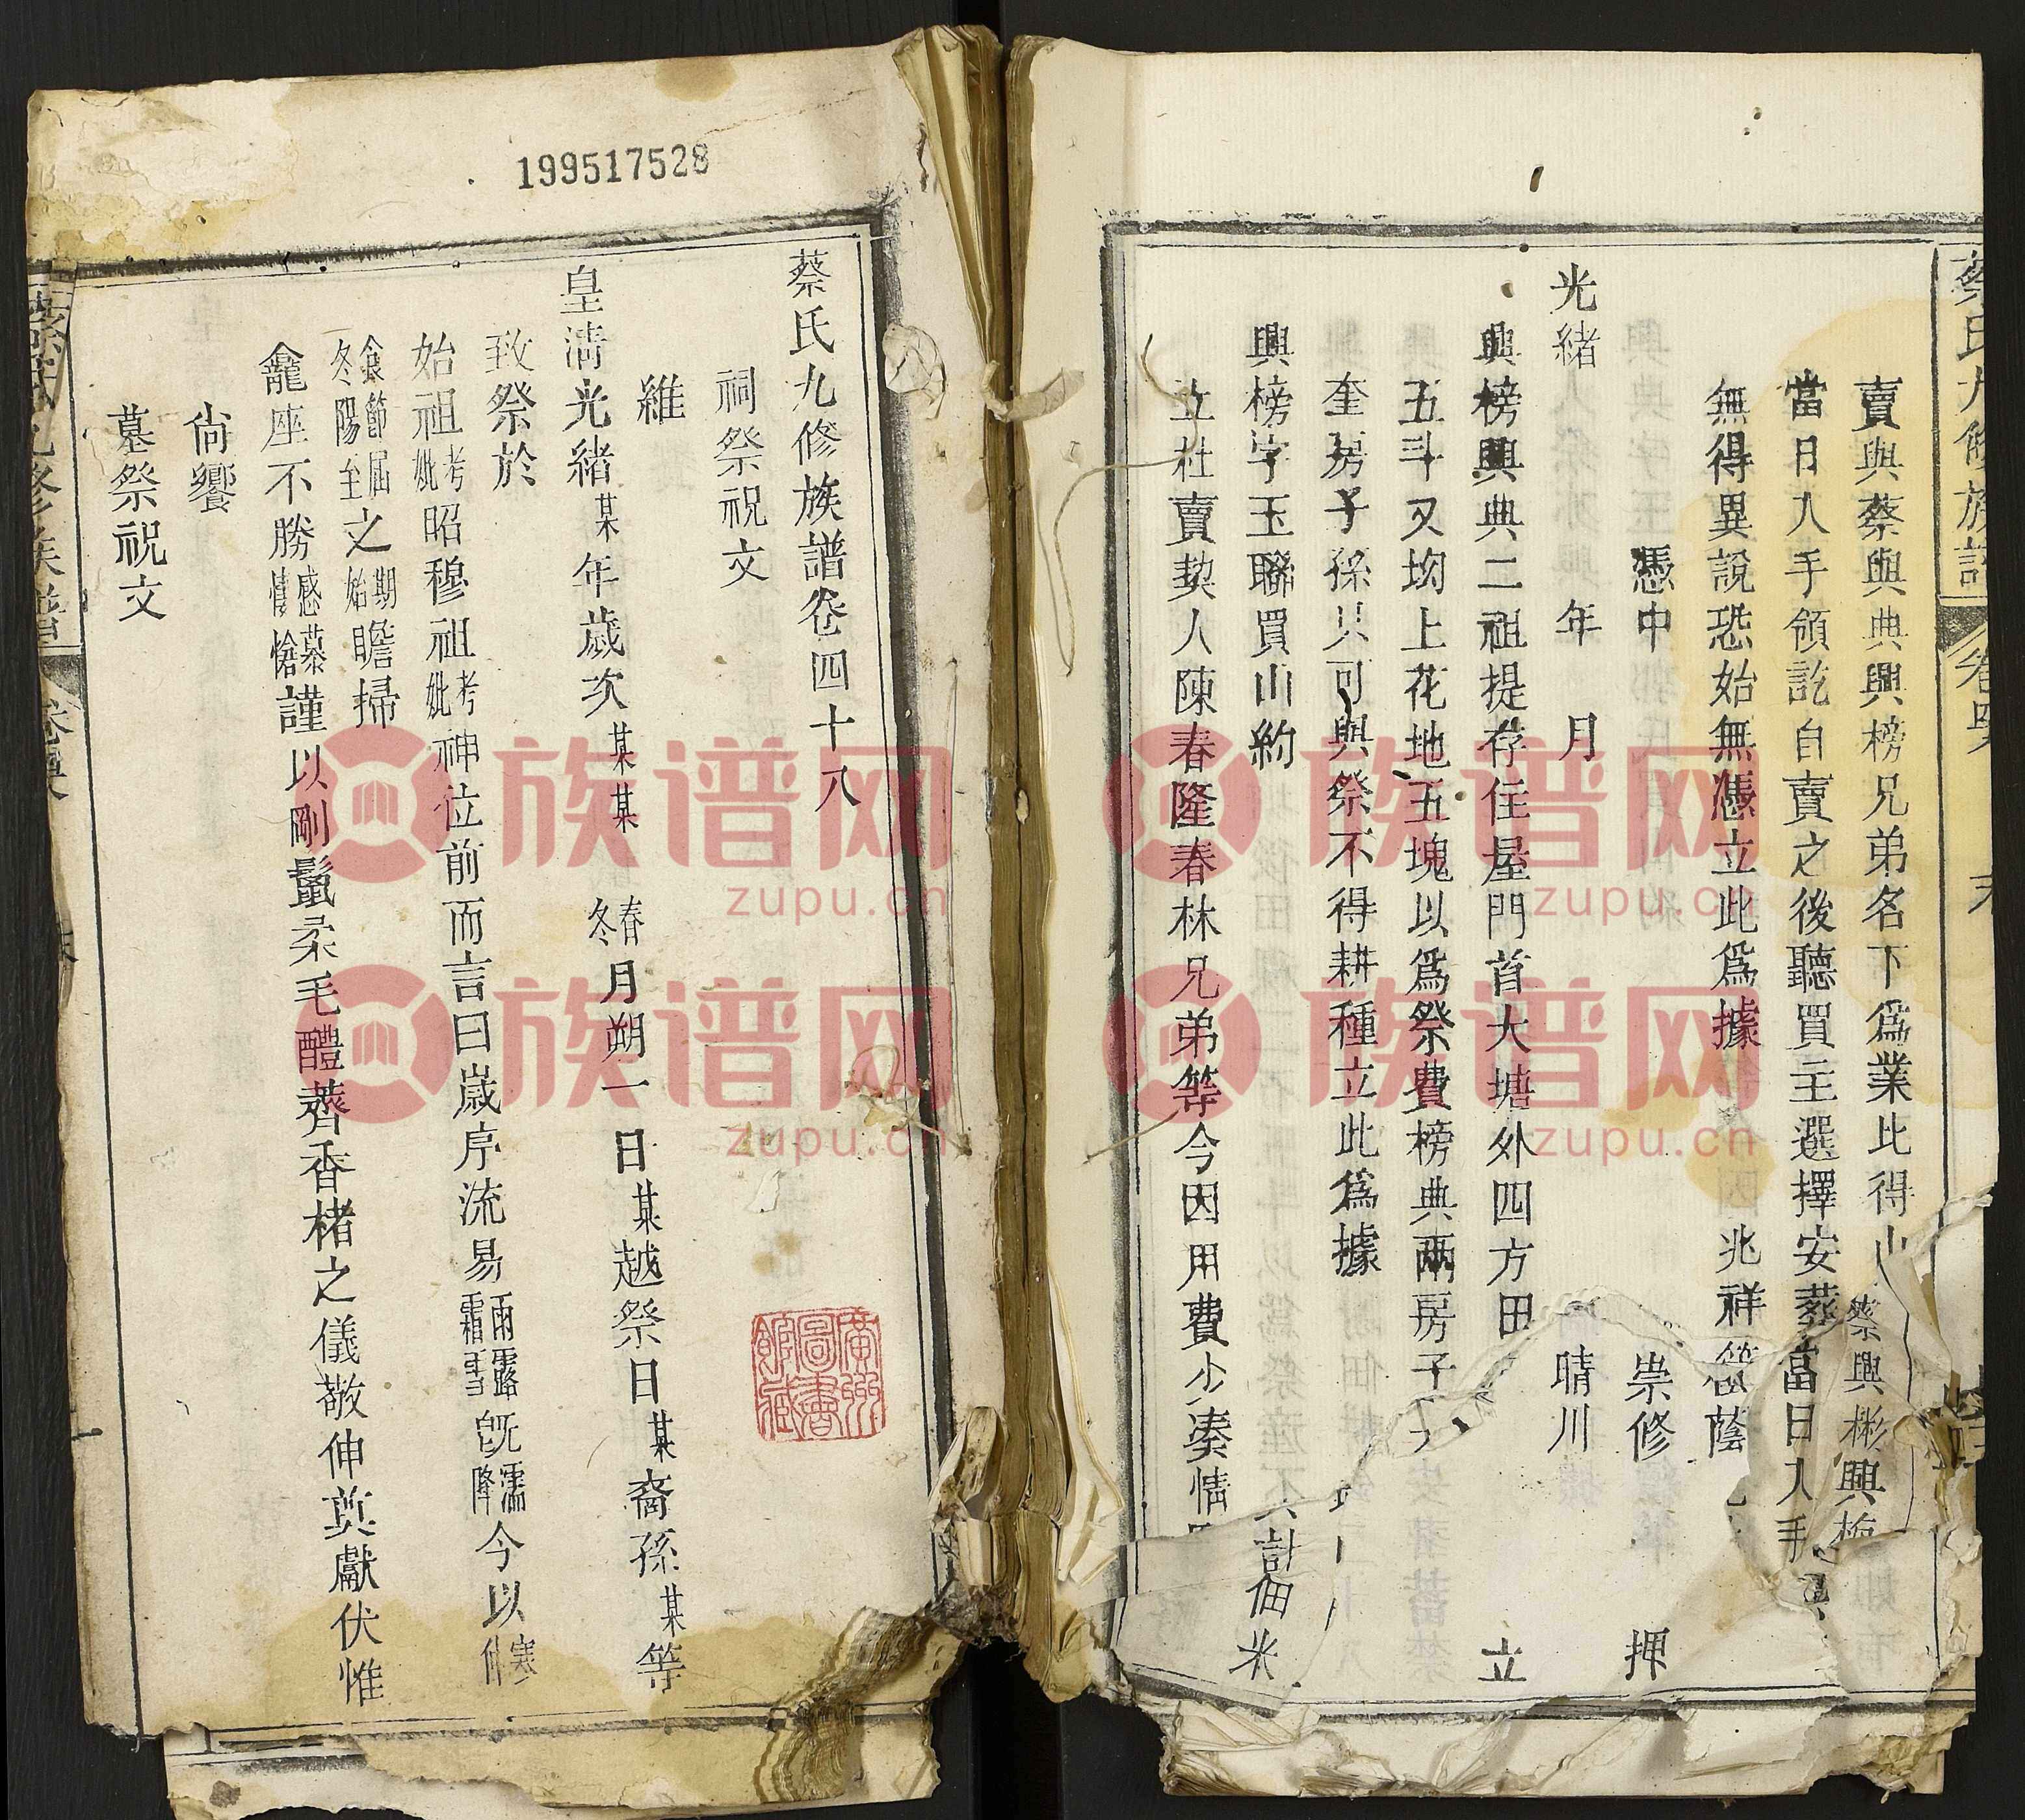 蔡氏九修族譜
賣與蔡興典興榜兄弟名下為業比得山 蔡興彬興梅
當日入手領訖自賣之後聽買主選擇安葬當日入手
無得異說恐始無憑立此為據 兆祥
憑中 崇修 押
光緒 年 月 晴川
興榜興典二祖提存住屋門首大塘外四方田 立
五斗又坳上花地五塊以為祭費榜典兩房子
奎房子孫只可與祭不得耕種立此為據
興榜字玉聯買山約 計佃米
立杜賣契人陳春隆春林兄弟等今因用費少湊情
199517528
蔡氏九修族譜卷四十八
祠祭祝文
維
皇清光緒某年歲次某某春冬月朔一日某越祭日某裔孫某等
致祭於
始祖考妣昭穆祖考妣神位前而言曰歲序流易雨露霜雪既濡降今以寒
食節冬陽屆至之期始瞻掃
龕座不勝感慕情愴謹以剛鬣柔毛醴薺香楮之儀敬伸奠獻伏惟
尚饗
墓祭祝文
廣州圖書館藏
蔡氏九修族譜
族谱网
zupu.cn
族谱网
zupu.cn
族谱网
zupu.cn
族谱网
zupu.cn